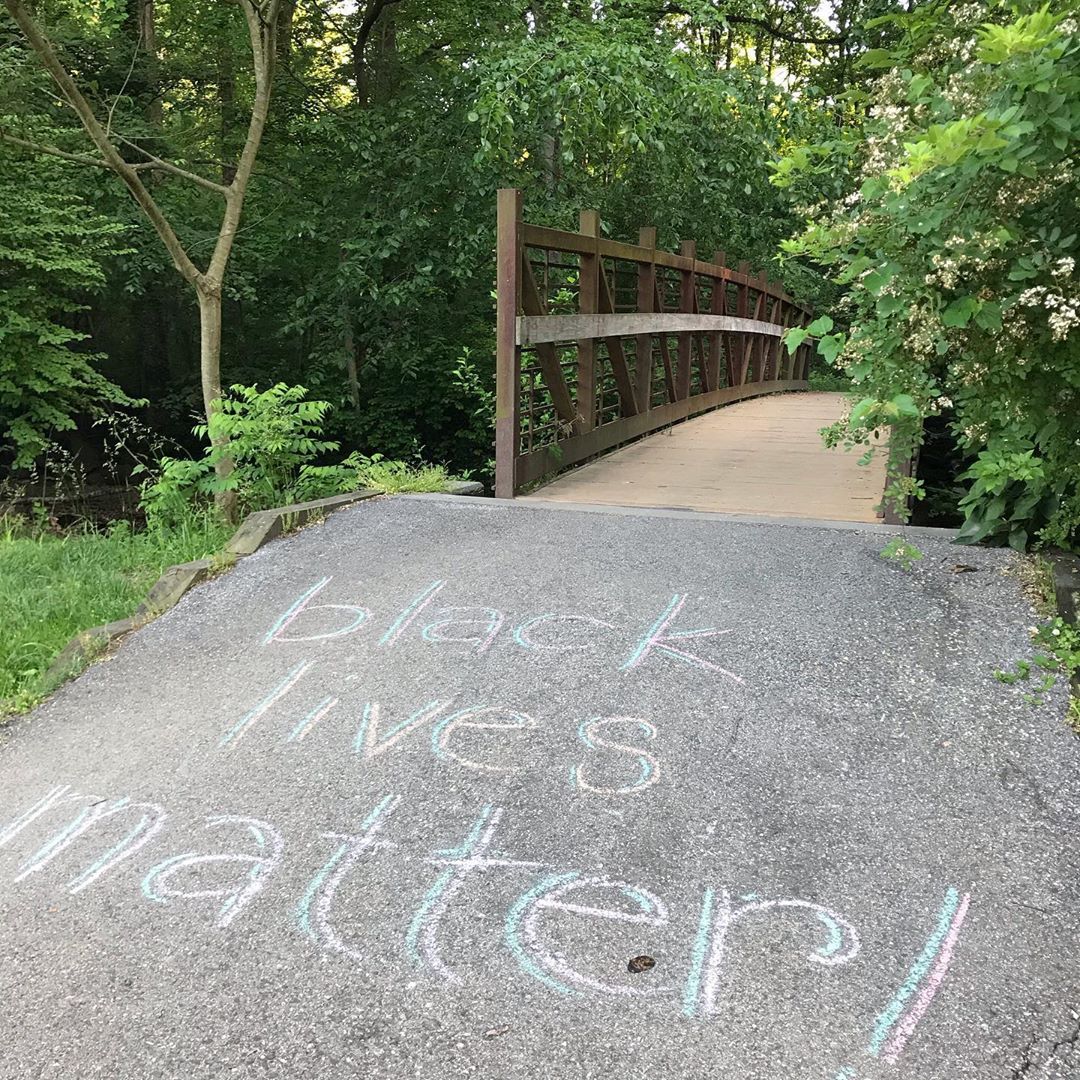 black
lives
matter!